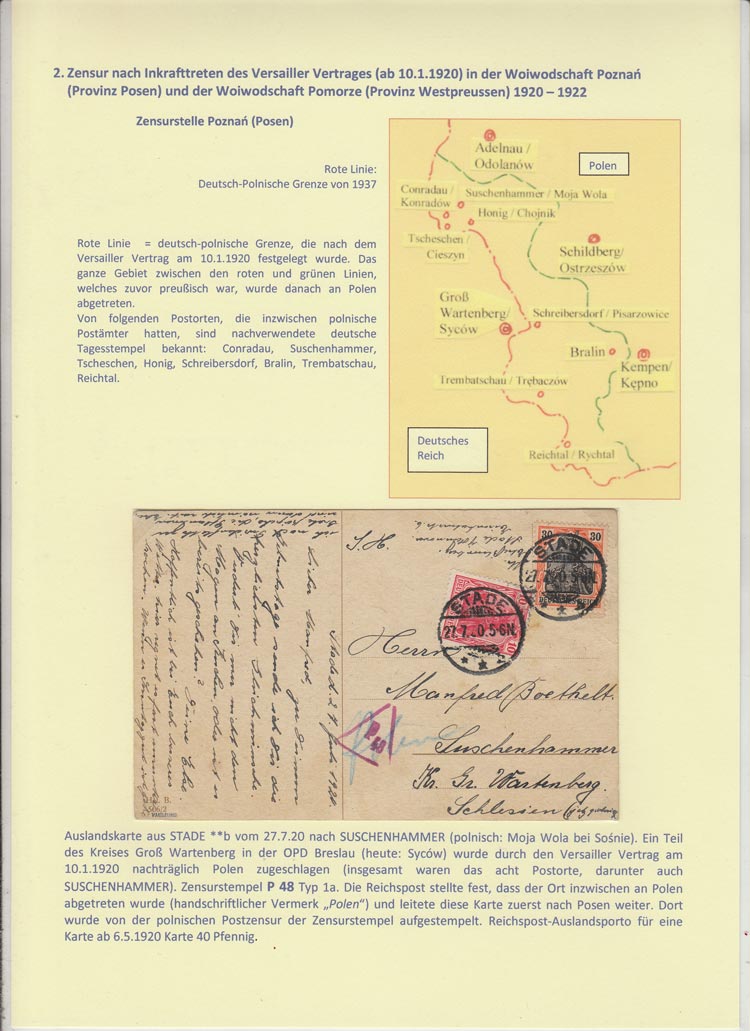 2. Zensur nach Inkrafttreten des Versailler Vertrages (ab 10.1.1920) in der Woiwodschaft Poznań
(Provinz Posen) und der Woiwodschaft Pomorze (Provinz Westpreussen) 1920 – 1922
Zensurstelle Poznań (Posen)
Rote Linie:
Deutsch-Polnische Grenze von 1937
Rote Linie = deutsch-polnische Grenze, die nach dem
Versailler Vertrag am 10.1.1920 festgelegt wurde. Das
ganze Gebiet zwischen den roten und grünen Linien,
welches zuvor preußisch war, wurde danach an Polen
abgetreten.
Von folgenden Postorten, die inzwischen polnische
Postämter hatten, sind nachverwendete deutsche
Tagesstempel bekannt: Conradau, Suschenhammer,
Tscheschen, Honig, Schreibersdorf, Bralin, Trembatschau,
Reichtal.
Adelnau /
Odolanów
Polen
Conradau /
Konradów
Suschenhammer / Moja Wola
Honig / Chojnik
Tscheschen /
Cieszyn
Schildberg/
Ostrzeszów
Groß
Wartenberg/
Syców
Schreibersdorf / Pisarzowice
Bralin
Kempen/
Kępno
Trembatschau / Trębaczów
Deutsches
Reich
Reichtal / Rychtal
S. H.
30 30
STADE
27.7.20.5-6N.
10
STADE
27.7.20.5-6N.
Stade d. 27. Juli 1920.
Lieber Manfred,
zu Deinem
Geburtstage sende ich Dir die
herzlichsten Glückwünsche.
Deine Else.
Herrn
Manfred Boethelt.
Suschenhammer
Kr. Gr. Wartenberg.
Schlesien
P
48
Polen
Auslandskarte aus STADE **b vom 27.7.20 nach SUSCHENHAMMER (polnisch: Moja Wola bei Sośnie). Ein Teil
des Kreises Groß Wartenberg in der OPD Breslau (heute: Syców) wurde durch den Versailler Vertrag am
10.1.1920 nachträglich Polen zugeschlagen (insgesamt waren das acht Postorte, darunter auch
SUSCHENHAMMER). Zensurstempel P 48 Typ 1a. Die Reichspost stellte fest, dass der Ort inzwischen an Polen
abgetreten wurde (handschriftlicher Vermerk „Polen“) und leitete diese Karte zuerst nach Posen weiter. Dort
wurde von der polnischen Postzensur der Zensurstempel aufgestempelt. Reichspost-Auslandsporto für eine
Karte ab 6.5.1920 Karte 40 Pfennig.